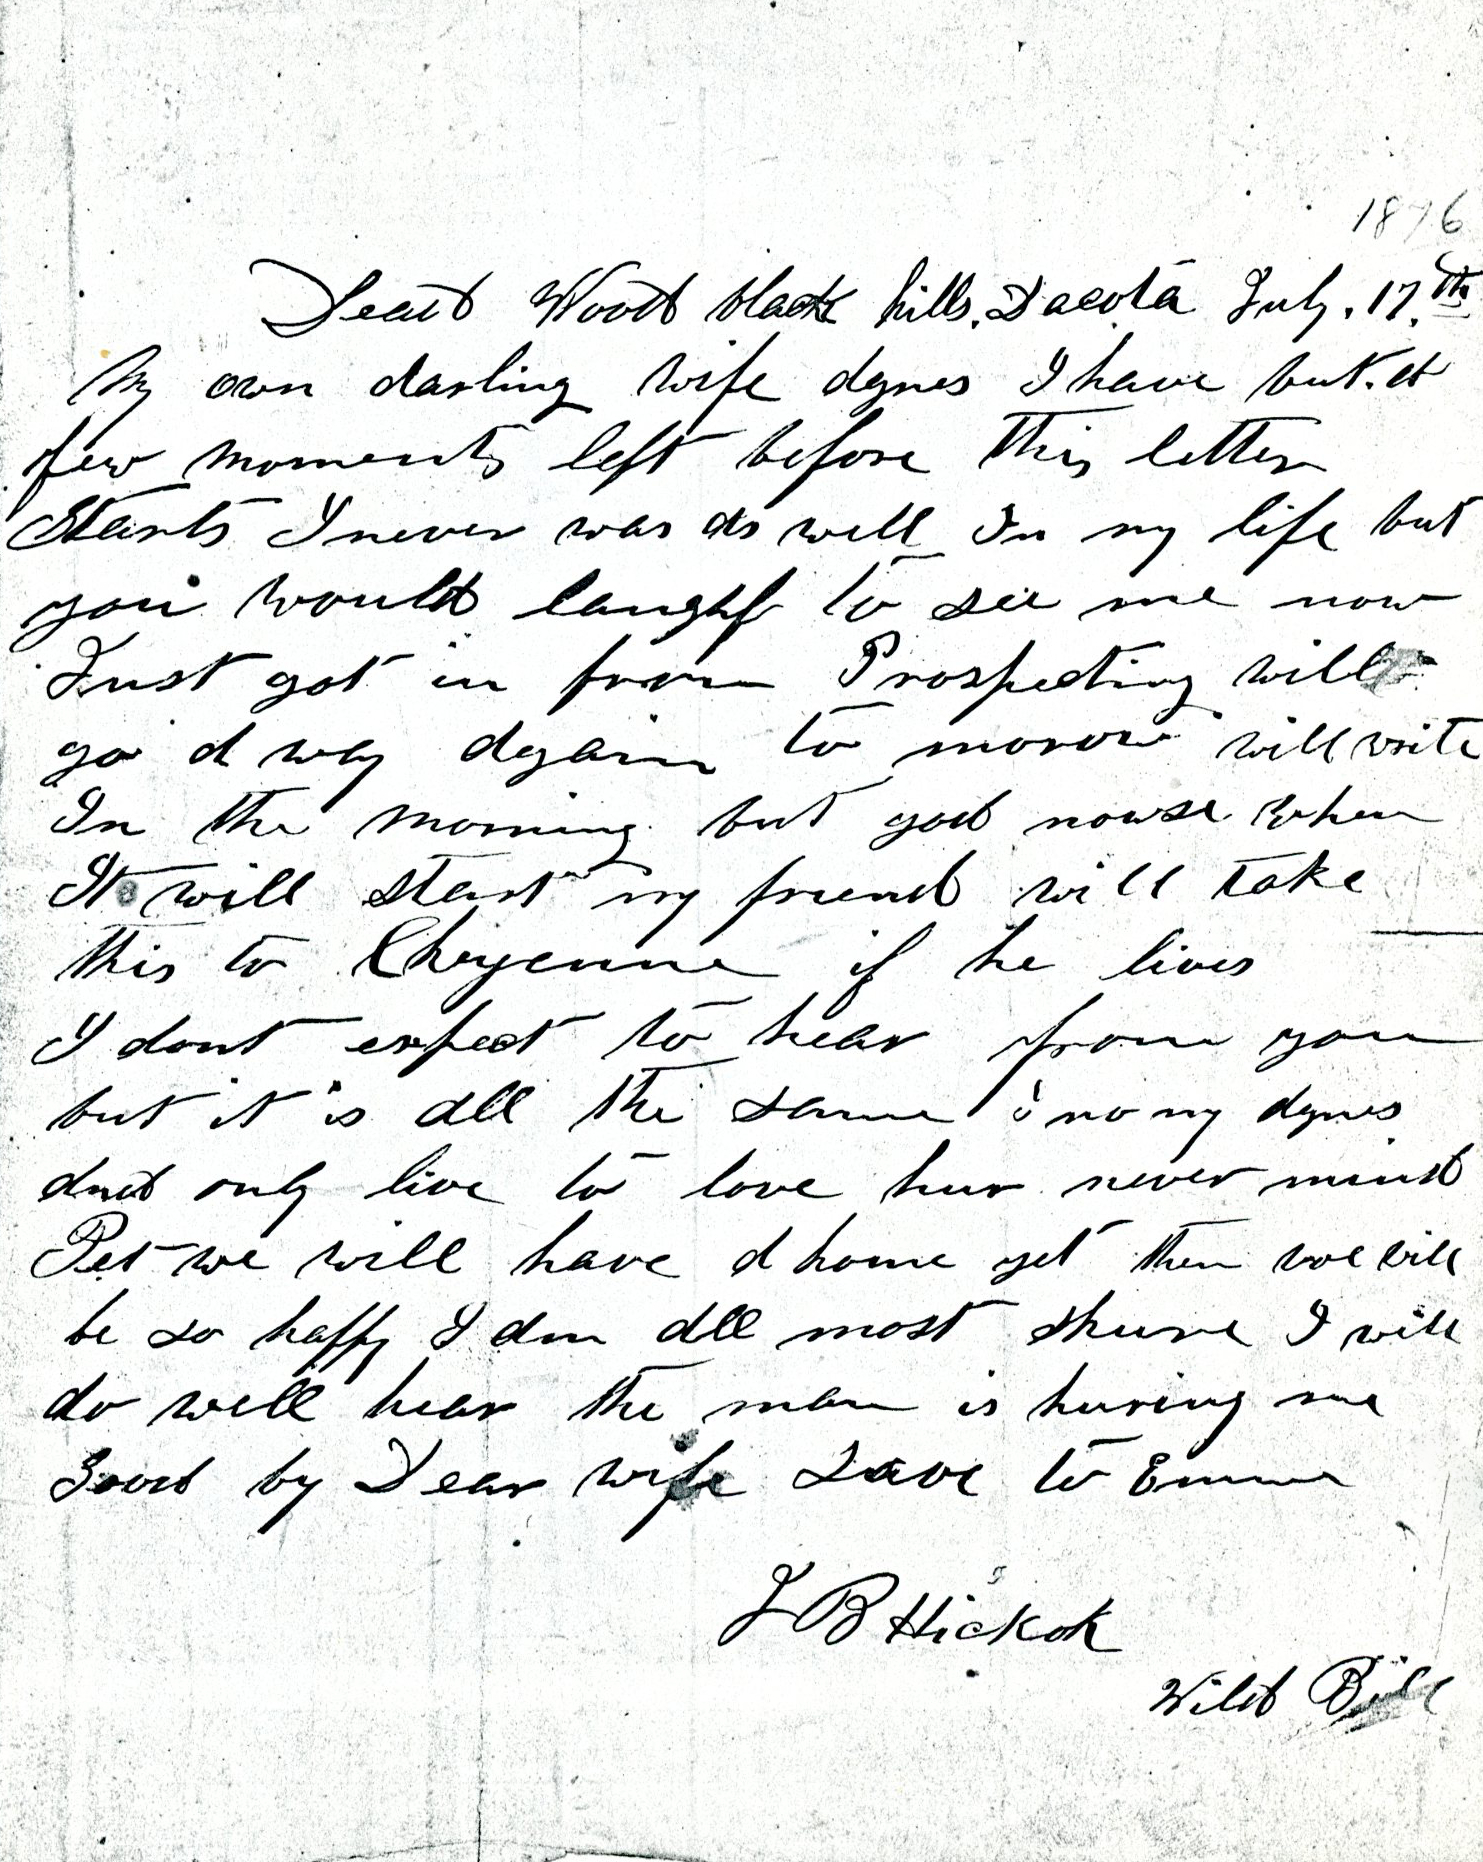 1876
Dead Wood black hills. Dacota July. 17.th
My own darling wife agnes I have but. a
few moments left before this letter
Starts I never was as well In my life but
you would laughf to see me now
Just got in from Prospecting will
go a way again to morow will write
In the morning but god nowse when
It will start my friend will take
this to Cheyenne if he lives
I dont expect to hear from you
but it is all the same i no my agnes
and only live to love hur never mind
Pet we will have a home yet then we will
be so happy I am all most shure I will
do well hear the man is huring me
Good by Dear wife Love to Emma
J B Hickok
Wild Bill